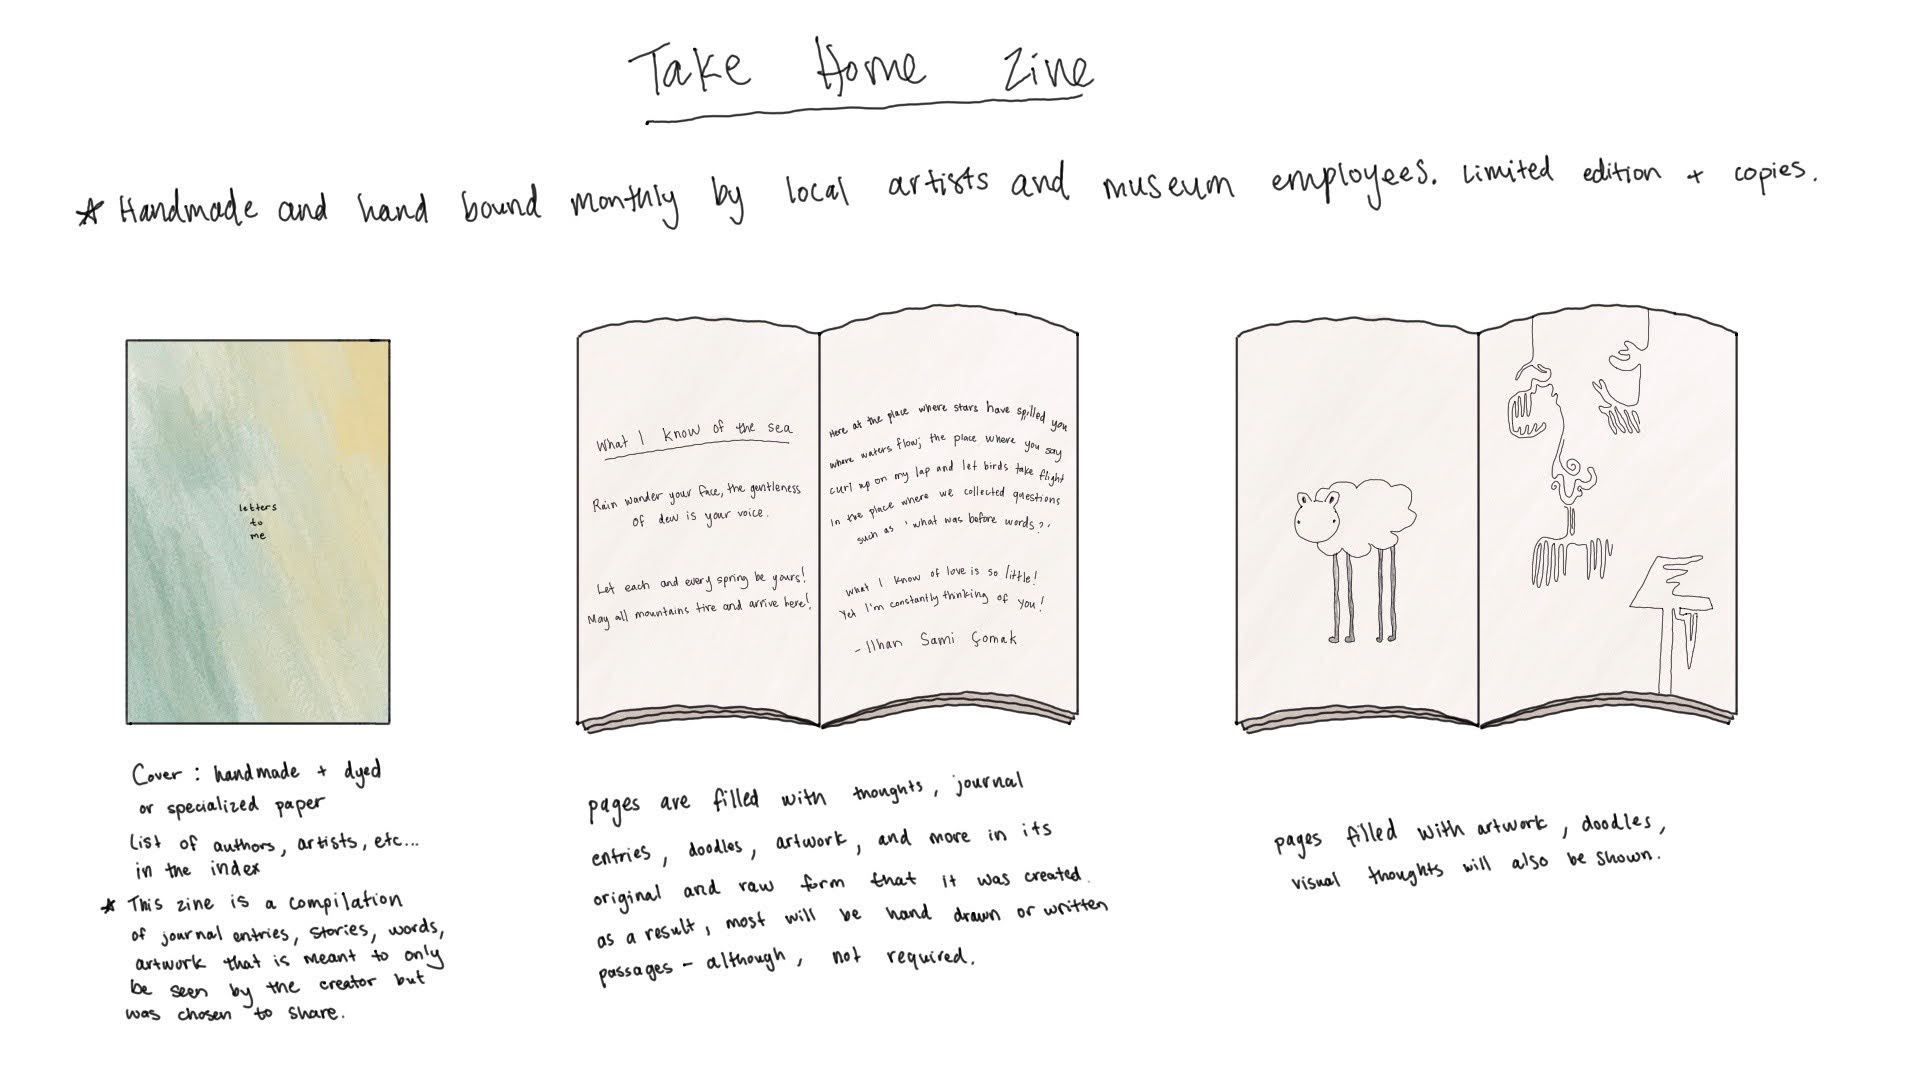 Take Home Zine
* Handmade and hand bound monthly by local artists and museum employees. Limited edition + copies.
letters
to
me
Cover : handmade + dyed
or specialized paper
List of authors, artists, etc...
in the index
* This zine is a compilation
of journal entries, stories, words,
artwork that is meant to only
be seen by the creator but
was chosen to share.
What I know of the sea
Rain wander your face, the gentleness
of dew is your voice.
Let each and every spring be yours!
May all mountains tire and arrive here!
Here at the place where stars have spilled you
where waters flow; the place where you say
curl up on my lap and let birds take flight
In the place where we collected questions
such as 'what was before words?'
What I know of love is so little!
Yet I'm constantly thinking of you!
- Ilhan Sami Çomak
pages are filled with thoughts, journal
entries, doodles, artwork, and more in its
original and raw form that it was created.
as a result, most will be hand drawn or written
passages - although, not required.
pages filled with artwork, doodles,
visual thoughts will also be shown.